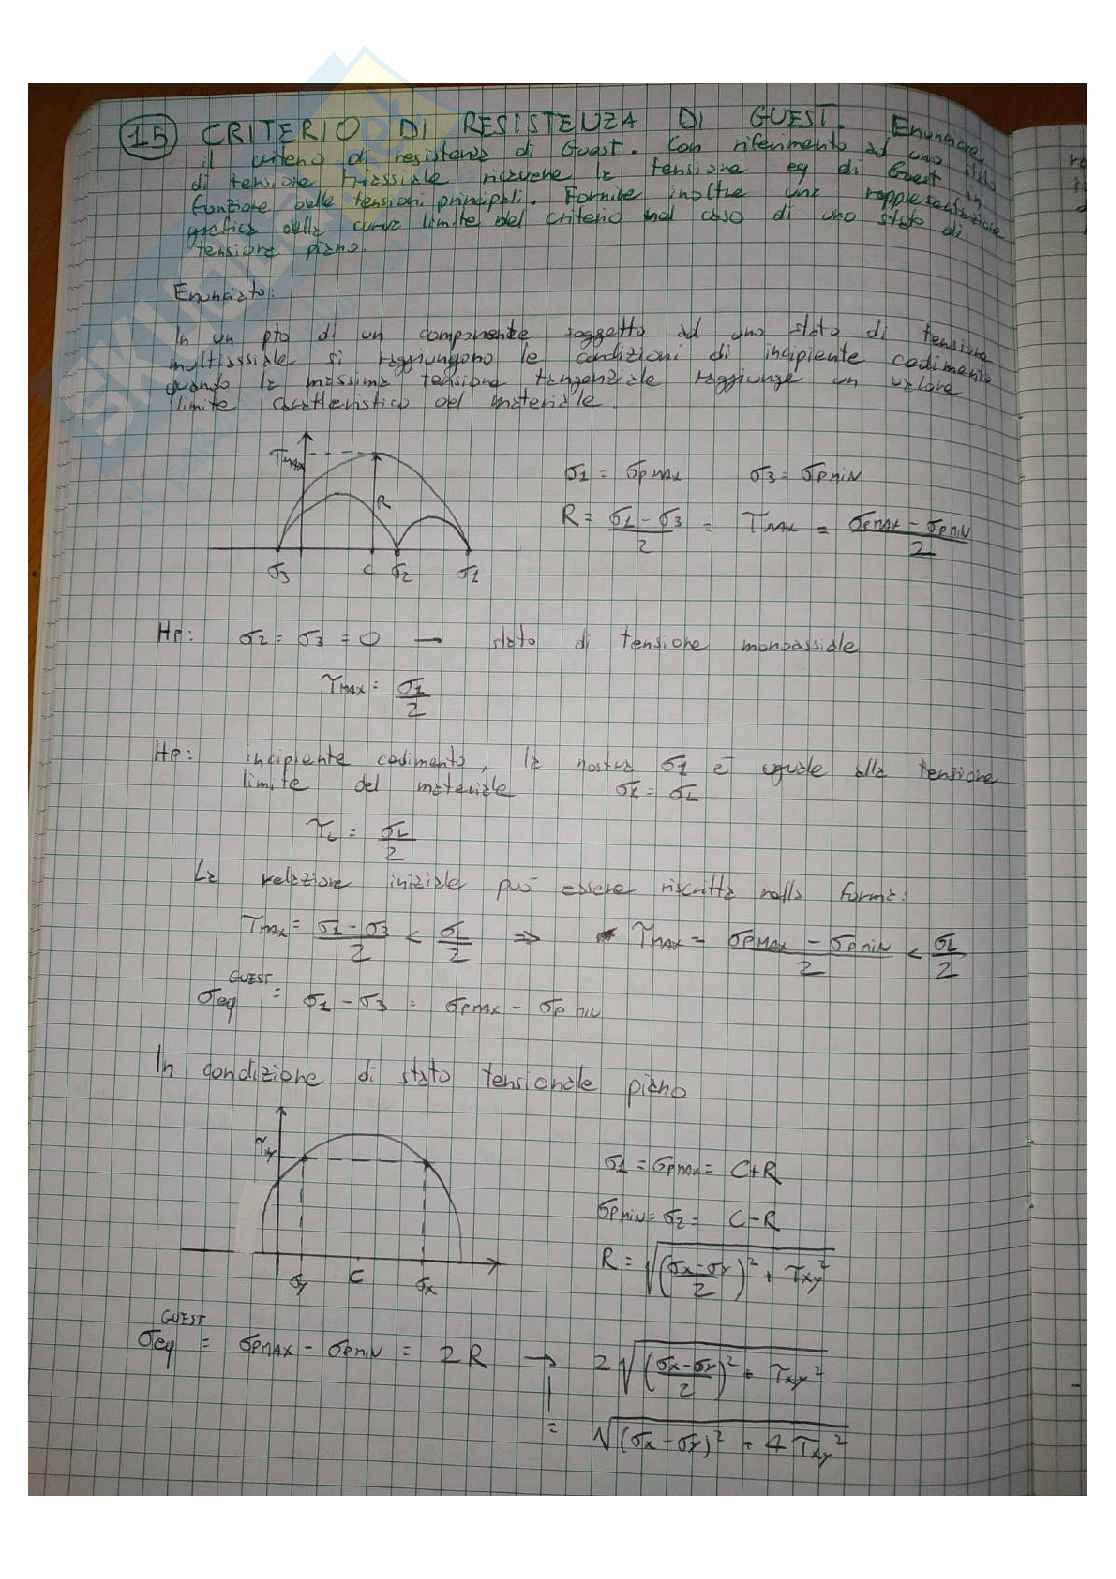 15 CRITERIO DI RESISTENZA DI GUEST. Enunciare
il criterio di resistenza di Guest. Con riferimento ad uno stato
di tensione triassiale ricavare la tensione eq di Guest in
funzione delle tensioni principali. Fornire inoltre una rappresentazione
grafica della curva limite del criterio nel caso di uno stato di
tensione piano.
Enunciato:
In un pto di un componente soggetto ad uno stato di tensione
multiassiale si raggiungono le condizioni di incipiente cedimento
quando la massima tensione tangenziale raggiunge un valore
limite caratteristico del materiale.
τmax
R
σ3 C σ2 σ1
σ1 = σpmax σ3 = σpmin
R = (σ1 - σ3)/2 = τmax = (σpmax - σpmin)/2
Hp: σ2 = σ3 = 0 → stato di tensione monoassiale
τmax = σ1/2
Hp: incipiente cedimento, la nostra σ1 è uguale alla tensione
limite del materiale σ1 = σL
τL = σL/2
La relazione iniziale può essere riscritta nella forma:
τmax = (σ1 - σ3)/2 < σL/2 ⇒ τmax = (σpmax - σpmin)/2 < σL/2
σeq GUEST = σ1 - σ3 = σpmax - σpmin
In condizione di stato tensionale piano
τxy
σy C σx
σ1 = σpmax = C+R
σpmin = σ2 = C-R
R = √(((σx-σy)/2)² + τxy²)
σeq GUEST = σpmax - σpmin = 2R → 2√(((σx-σy)/2)² + τxy²)
= √((σx-σy)² + 4τxy²)